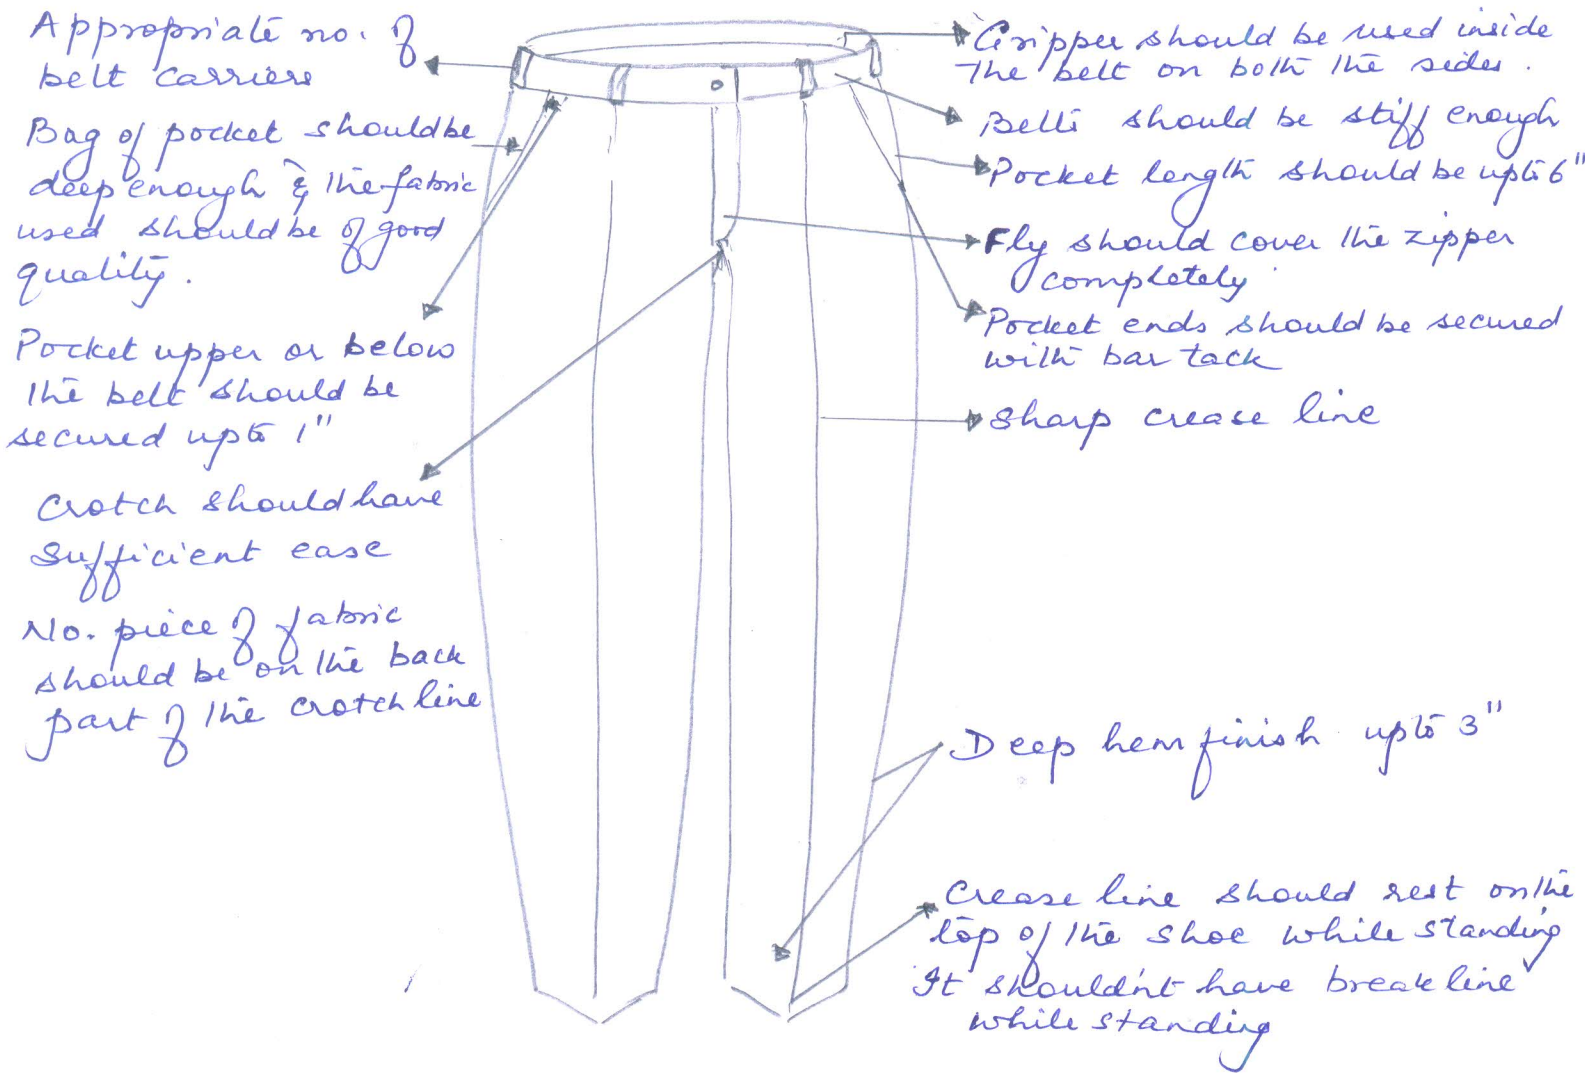 Appropriate no. of
belt carriers
Bag of pocket should be
deep enough & the fabric
used should be of good
quality.
Pocket upper or below
the belt should be
secured upto 1"
Crotch should have
sufficient ease
No. piece of fabric
should be on the back
part of the crotch line
Gripper should be used inside
the belt on both the sides.
Belts should be stiff enough
Pocket length should be upto 6"
Fly should cover the zipper
completely
Pocket ends should be secured
with bar tack
Sharp crease line
Deep hem finish upto 3"
Crease line should rest on the
top of the shoe while standing
It shouldn't have break line
while standing